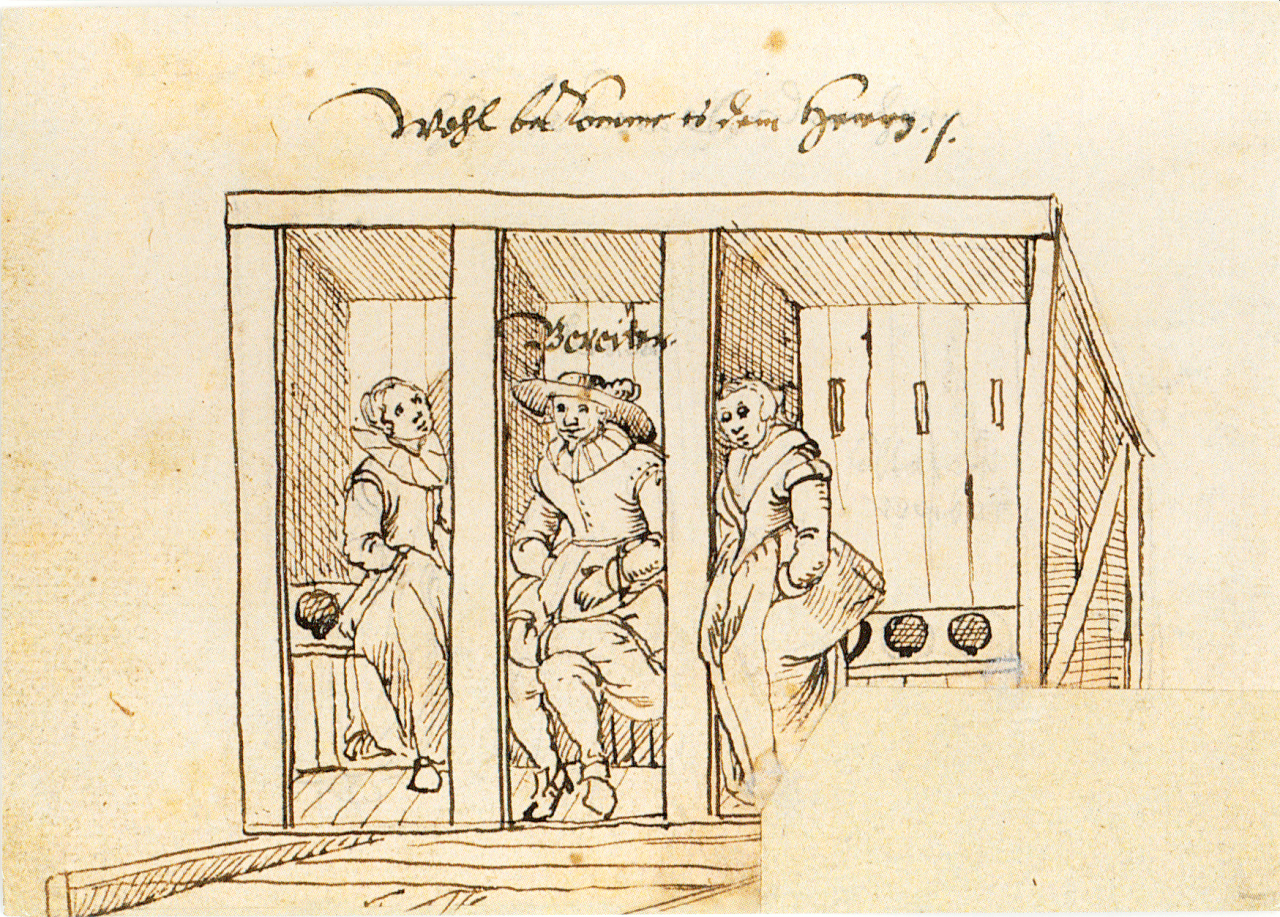 Wohl bekomme es dem Herrn ./.
Bereiter.